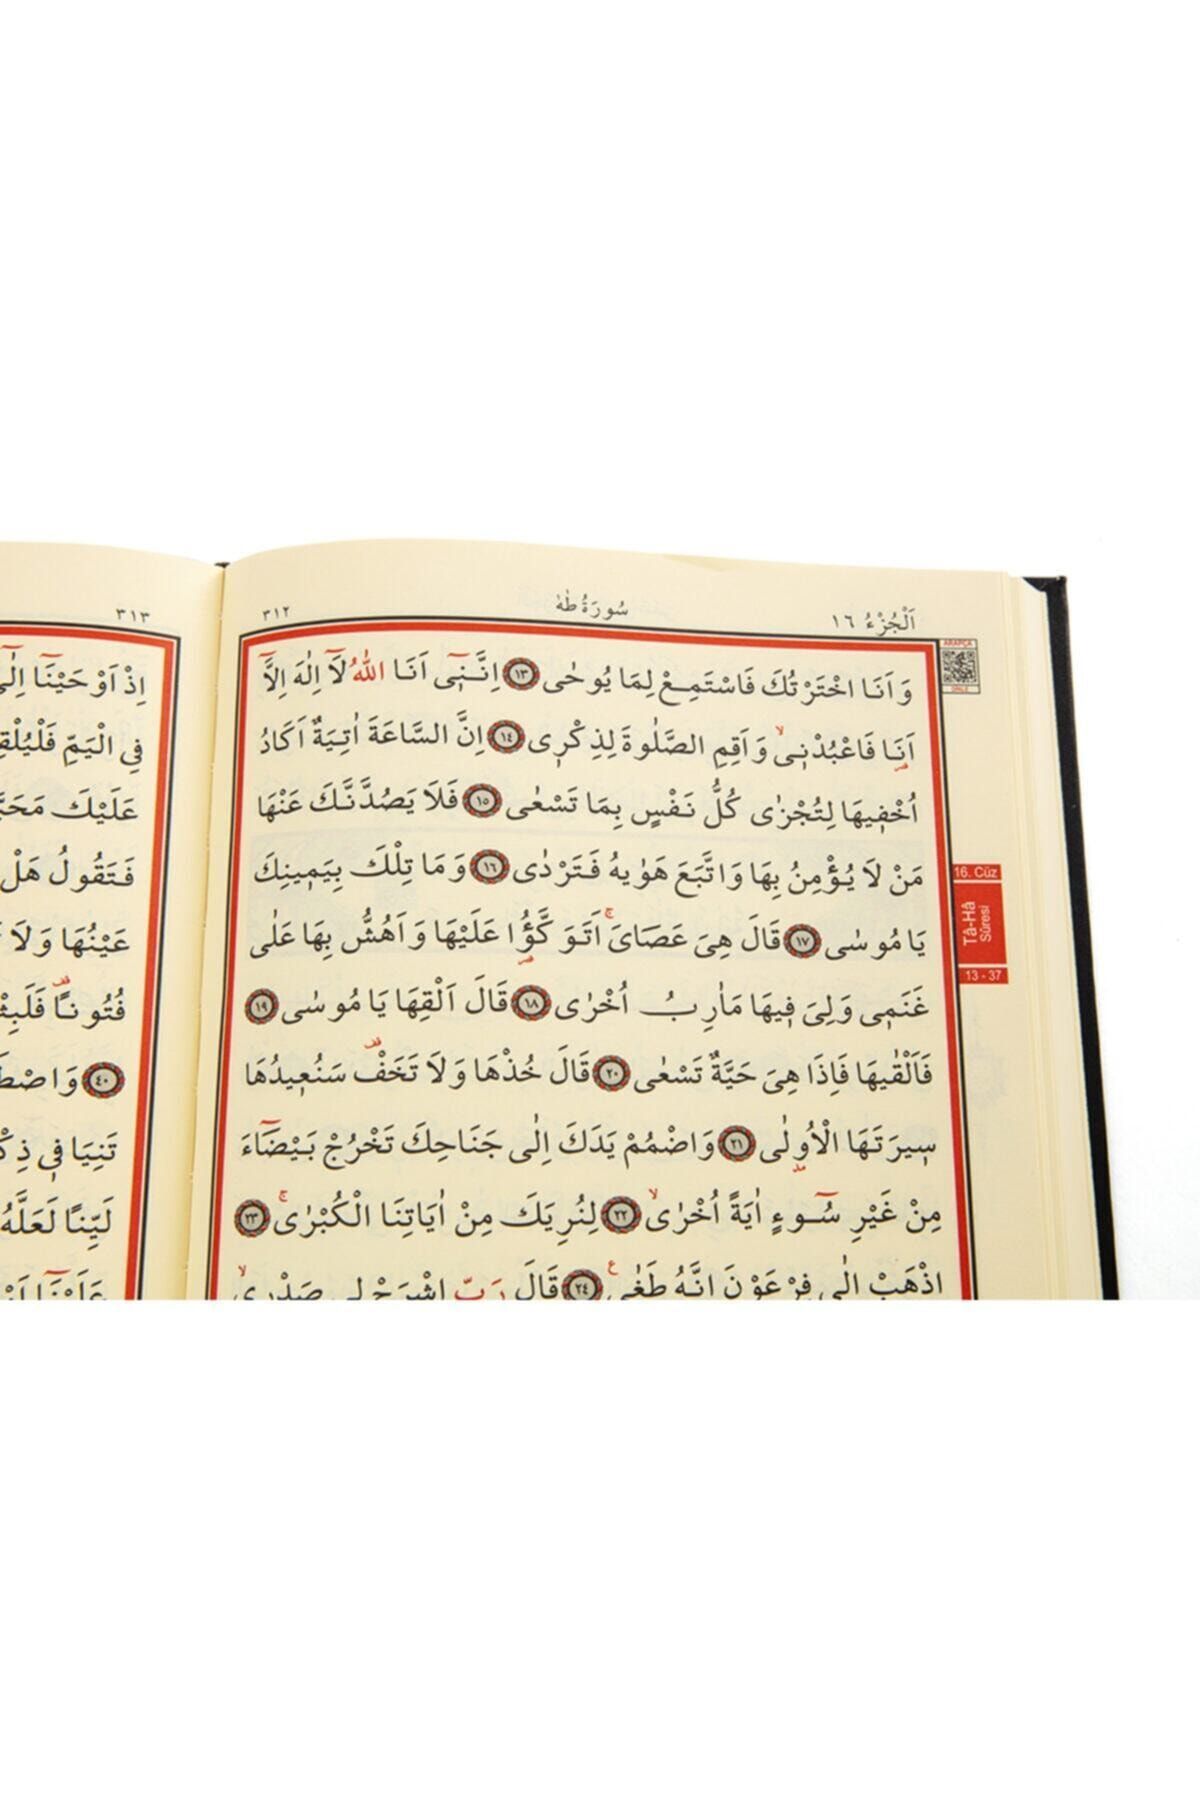 اَلْجُزْءُ ١٦
سُورَةُ طٰهٰ
٣١٢
وَاَنَا اخْتَرْتُكَ فَاسْتَمِعْ لِمَا يُوحٰى ١٣ اِنَّنٖٓى اَنَا اللّٰهُ لَٓا اِلٰهَ اِلَّٓا
اَنَا فَاعْبُدْنٖىۙ وَاَقِمِ الصَّلٰوةَ لِذِكْرٖى ١٤ اِنَّ السَّاعَةَ اٰتِيَةٌ اَكَادُ
اُخْفٖيهَا لِتُجْزٰى كُلُّ نَفْسٍ بِمَا تَسْعٰى ١٥ فَلَا يَصُدَّنَّكَ عَنْهَا
مَنْ لَا يُؤْمِنُ بِهَا وَاتَّبَعَ هَوٰيهُ فَتَرْدٰى ١٦ وَمَا تِلْكَ بِيَمٖينِكَ
يَا مُوسٰى ١٧ قَالَ هِىَ عَصَاىَۚ اَتَوَكَّؤُ۬ا عَلَيْهَا وَاَهُشُّ بِهَا عَلٰى
غَنَمٖى وَلِىَ فٖيهَا مَاٰرِبُ اُخْرٰى ١٨ قَالَ اَلْقِهَا يَا مُوسٰى ١٩
فَاَلْقٰيهَا فَاِذَا هِىَ حَيَّةٌ تَسْعٰى ٢٠ قَالَ خُذْهَا وَلَا تَخَفْ۠ سَنُعٖيدُهَا
سٖيرَتَهَا الْاُو۫لٰى ٢١ وَاضْمُمْ يَدَكَ اِلٰى جَنَاحِكَ تَخْرُجْ بَيْضَٓاءَ
مِنْ غَيْرِ سُٓوءٍ اٰيَةً اُخْرٰىۙ ٢٢ لِنُرِيَكَ مِنْ اٰيَاتِنَا الْكُبْرٰىۚ ٢٣
اِذْهَبْ اِلٰى فِرْعَوْنَ اِنَّهُ طَغٰىࣖ ٢٤ قَالَ رَبِّ اشْرَحْ لٖى صَدْرٖىۙ
ARAPÇA
DİNLE
16. Cüz
Tâ-Hâ
Sûresi
13 - 37
٣١٣
اِذْ اَوْحَيْنَٓا اِلٰٓى
فِى الْيَمِّ
عَلَيْكَ
فَتَقُولُ هَلْ
عَيْنُهَا وَلَا
فُتُونًا۠
٤٠ وَاصْطَ
تَنِيَا فٖى
لَيِّنًا لَعَلَّهُ
عَلَيْنَٓا اَوْ